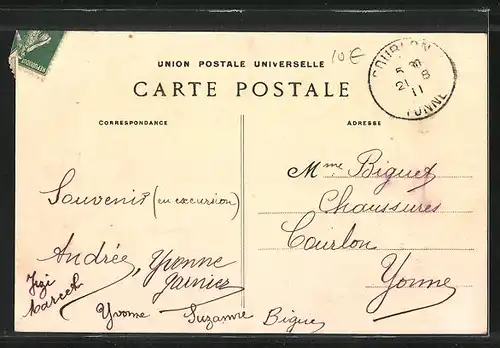 10€
COURLON
5 30
21 8
11
YONNE
UNION POSTALE UNIVERSELLE
CARTE POSTALE
CORRESPONDANCE
ADRESSE
Mme Biguet
Chaussures
Courlon
Yonne
Souvenir (en excursion)
Andrée, Yvonne
Garnier
Marcel
Yvonne Suzanne Biguet